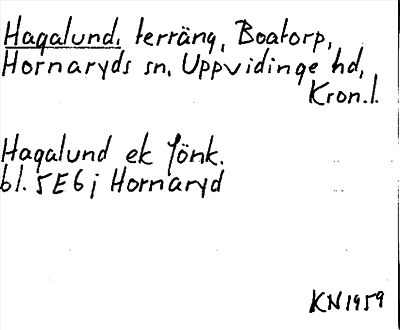 Hagalund, terräng, Boatorp,
Hornaryds sn, Uppvidinge hd,
Kron.l.
Hagalund ek Jönk.
bl. 5E6j Hornaryd
KN1959